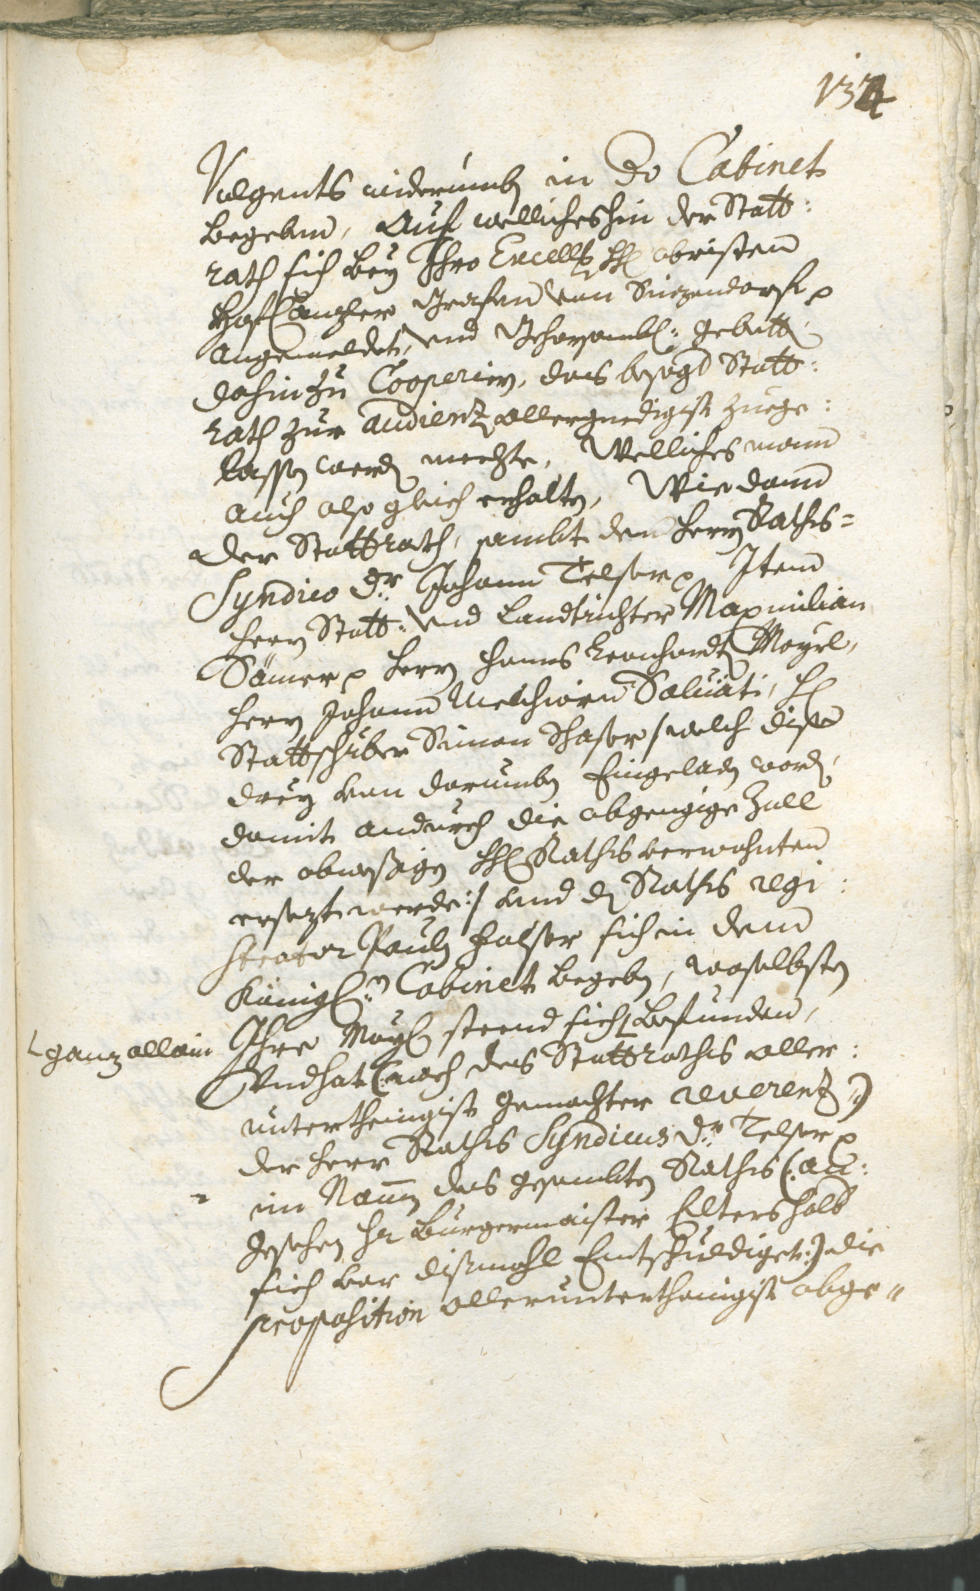 134
Vulgents widerumb in Do Cabinet
begeben, Auf wellicheshin der Statt:
rath sich bey Ihro Excell: H: obristen
Hof Canzler Grafen von Sinzendorf p
angemeldet, und Gehorsambl: gebett,
dahin zu Cooperirn, das besagt Statt:
rath zur audientz allergnedigist zuege:
lassen werdn mechte, Welliches mann
auch also gleich erhalten, Wie dann
der Stattrath, sambt dem herrn Raths=
Syndico Dr: Johann Telser p Item
herrn Statt: und Landtrichter Maximilian
Sämer p herrn hanns Leonhardt Mayrl,
herrn Johann Melchiorn Saluäti, H:
Stattschreiber Simon Schaser /: welch dise
drey von darumben Eingeladen wordn,
damit andurch die abgengige Zall
der abwesigen HH: Rathsverwohnten
ersezt werde :/ und dr Raths regi:
strator Paulen Falser sich in dem
Königl: Cabinet begeben, woselbsten
Ihre Mayt: steend sich befunden,
ganz allain
Und hat (: nach des Stattraths aller:
unterthenigist gemachter reverentz :)
der herr Raths Syndicus Dr: Telser p
im Namen des gesambten Raths (: an:
gesehen hr Burgermaister Elters halb
sich vor dißmahl Entschuldiget :) die
proposition allerunterthenigist abge=